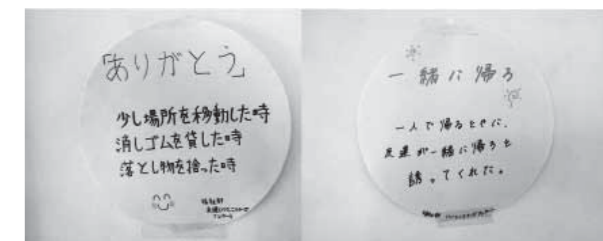 「ありがとう」
少し場所を移動した時
消しゴムを貸した時
落とし物を拾った時
一緒に帰ろ
一人で帰るときに、
友達が一緒に帰ろと
誘ってくれた。